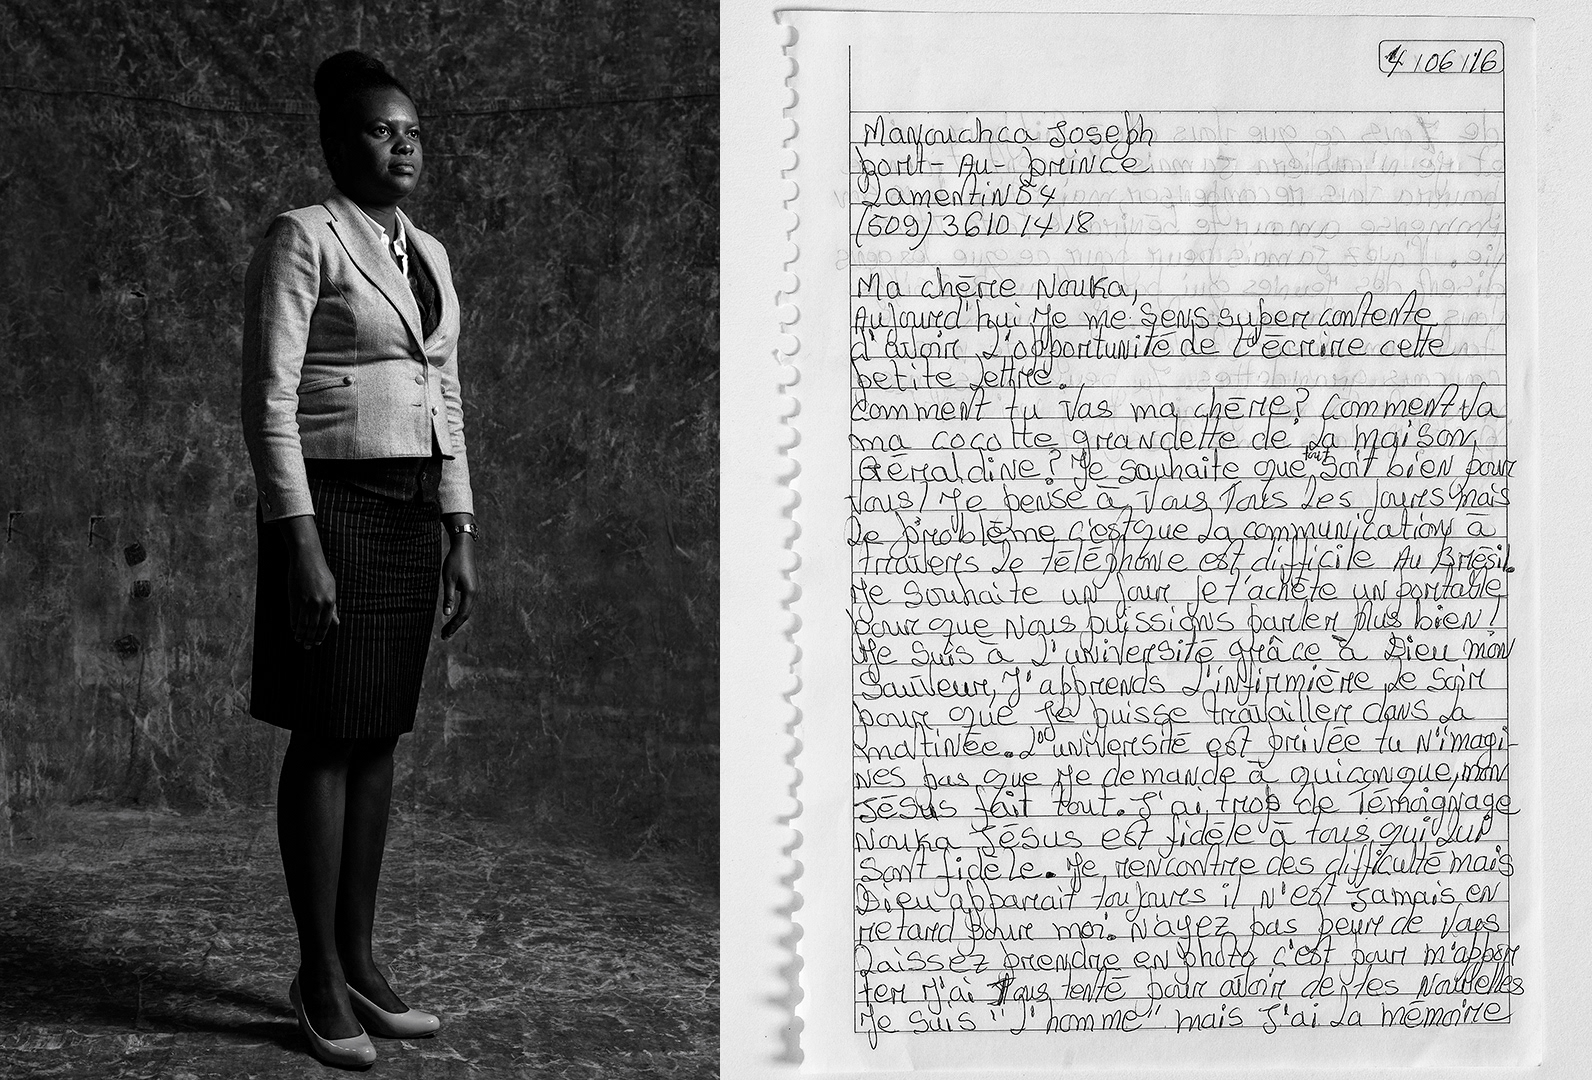 4/06/16
Manouchca Joseph
port-Au-prince
Lamentin 54
(509) 3610 14 18
Ma chère Nouka,
Aujourd'hui Je me sens super contente
d'avoir L'opportunité de t'écrire cette
petite Lettre.
comment tu vas ma chère? Comment va
ma cocotte grandette de La maison,
Géraldine? Je souhaite que tout soit bien pour
vous! Je pense à vous tous Les jours mais
Le problème c'est que La communication à
travers Le téléphone est difficile Au Brésil.
Je souhaite un jour Je t'achète un portable
pour que nous puissions parler plus bien!
Je suis à L'université grâce à Dieu mon
Sauveur, J'apprends L'infirmière Le soir
pour que Je puisse travailler dans La
matinée. L'université est privée tu n'imagi-
nes pas que Je demande à quiconque, mon
Jésus fait tout. J'ai trop de Témoignage
Nouka Jésus est fidèle à tous qui Lui
sont fidèle. Je rencontre des difficulté mais
Dieu apparait toujours il n'est Jamais en
retard pour moi. N'ayez pas peur de vous
Laissez prendre en photo c'est pour m'appor
ter J'ai tous tenté pour avoir de tes Nouvelles
Je suis "L'homme" mais J'ai La mémoire